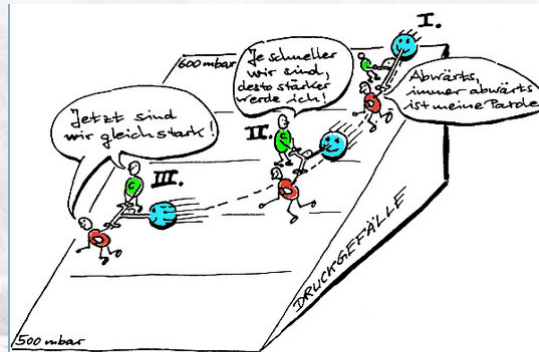 I.
600 mbar
Je schneller
wir sind,
desto stärker
werde ich!
Abwärts,
immer abwärts
ist meine Parole
Jetzt sind
wir gleich stark!
II.
C
D
C
D
III.
C
D
DRUCKGEFÄLLE
500 mbar